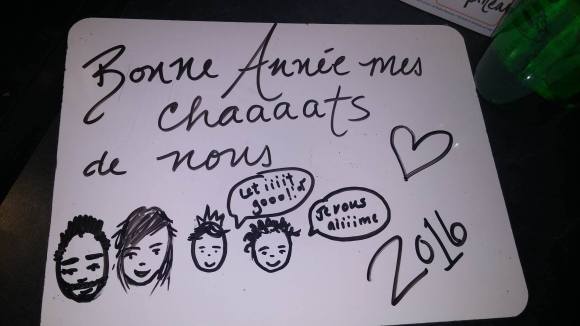 Bonne Année mes
chaaaats
de nous
Let iiiit
gooo!!
Je vous
aliiime
2016